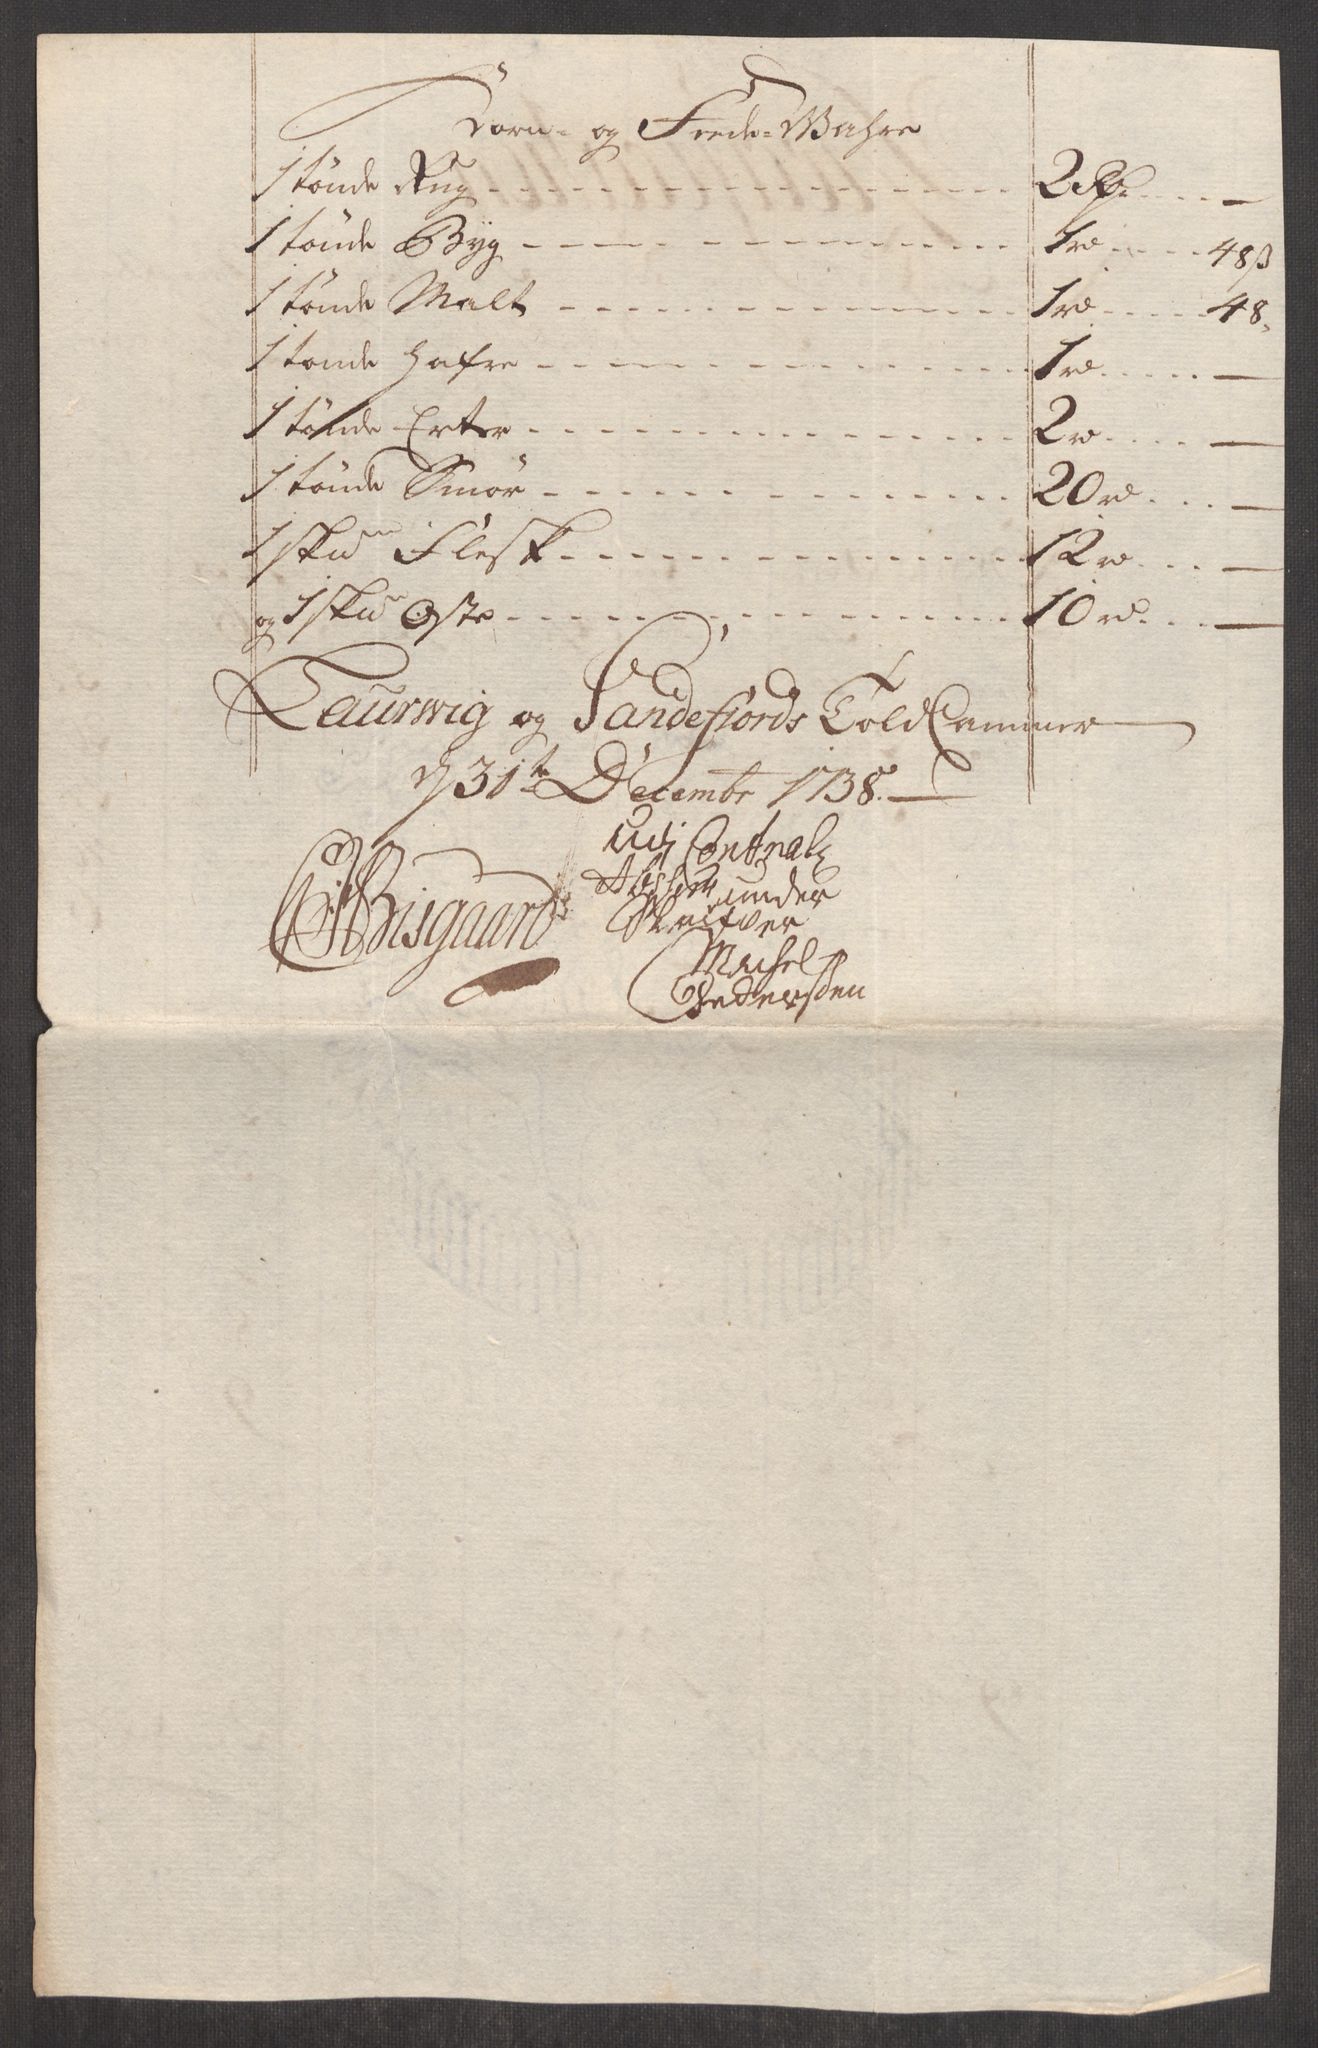 Korn- og Feede-Wahre
1 tønde Rug - - - 2 Rd. - - - —
1 tønde Byg - - - 1 rd - - - 48 ß
1 tønde Malt - - - 1 rd - - - 48.
1 tønde Hafre - - - 1 rd - - - —
1 tønde Erter - - - 2 rd - - - —
1 tønde Smör - - - 20 rd - - - —
1 skud Flesk - - - 12 rd - - - —
og 1 skud Oste - - - 10 rd - - - —
Laurwig og Sandefiords Told Cammer
d 31te Decembr 1738.
Bisgaard
under
Skrifver
Pedersen